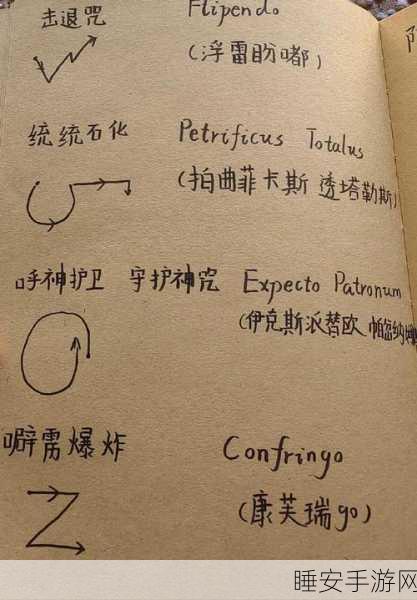 击退咒 Flipendo
(浮雷盼嘟)
统统石化 Petrificus Totalus
(拍曲菲卡斯 透塔勒斯)
呼神护卫 守护神咒 Expecto Patronum
(伊克斯派赞欧 帕
噼雳爆炸 Confringo
(康芙瑞go)
睡安手游网